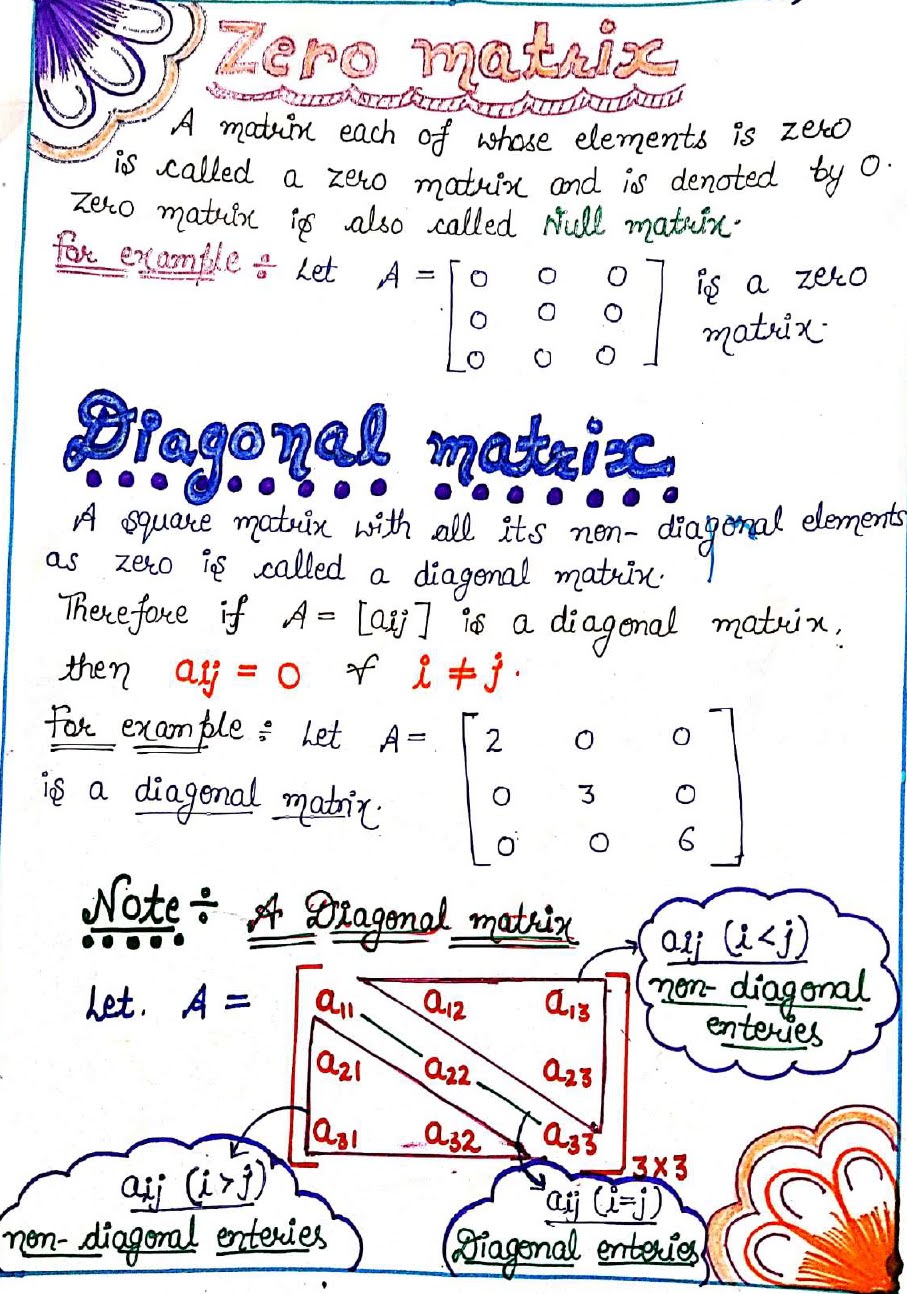 Zero matrix
A matrix each of whose elements is zero
is called a zero matrix and is denoted by O.
Zero matrix is also called Null matrix.
For example ÷ Let A = [ 0 0 0
0 0 0
0 0 0 ] is a zero
matrix.
Diagonal matrix
A square matrix with all its non-diagonal elements
as zero is called a diagonal matrix.
Therefore if A = [aij] is a diagonal matrix,
then aij = 0 ∀ i ≠ j.
For example ÷ Let A = [ 2 0 0
is a diagonal matrix. 0 3 0
0 0 6 ]
Note ÷ A Diagonal matrix
aij (i<j)
non-diagonal
enteries
Let. A = [ a11 a12 a13
a21 a22 a23
a31 a32 a33 ] 3×3
aij (i>j)
non-diagonal enteries
aij (i=j)
Diagonal enteries